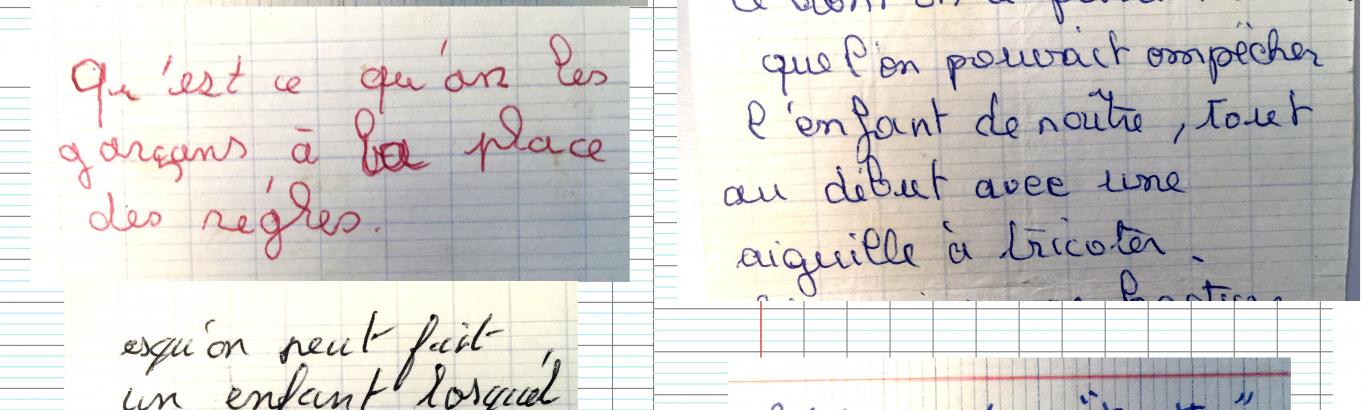 Qu'est ce qu'an les
garçans à la place
des régles.
esqu'on peut fait
un enfant losqu'el
que l'on pouvait empêcher
l'enfant de naître, tout
au début avec une
aiguille à tricoter.